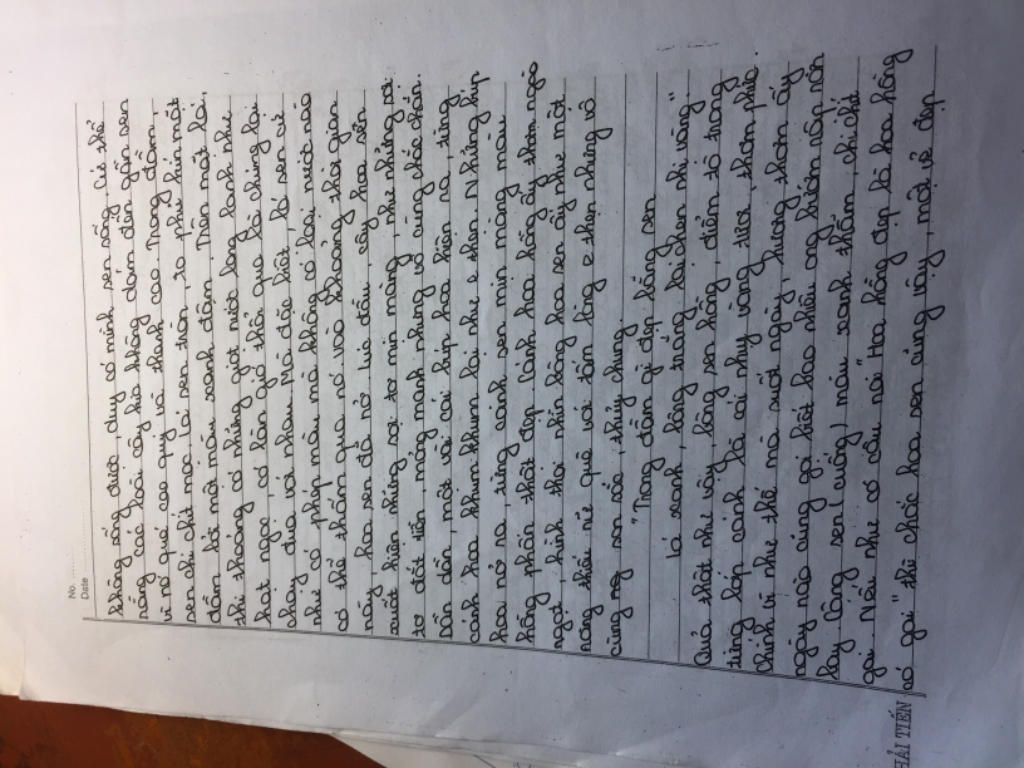 No ........
Date ........
không sống dưới, duy có mình sen sống, Cứ thế
nắng có hoài cây hia không dám đến gần sen
vì nó quá cao quý và thanh cao. Trong đầm
sen chi chít mọc lá sen tròn, to phủ kín mặt
đầm bởi một màu xanh đậm. Trên mặt lá,
thi thoảng có những giọt nước long lanh như
hạt ngọc, có làn gió thổi qua là chúng lại
chạy đua với nhau. Mà đặc biệt, lá sen cứ
như có phép màu mà không có loài nước nào
có thể thấm qua nó. Vào khoảng thời gian
này, hoa sen đã nở. Lúc đầu, cây hoa sen
xuất hiện những sợi tơ mịn màng, như những sợi
tơ dệt tiên, mỏng manh nhưng vô cùng chắc chắn.
Dần dần, một vài cái búp hoa hiện ra, từng
cánh hoa khum khum lại như e thẹn. Những búp
hoa nở ra, từng cánh sen mịn màng màu
hồng phấn thật đẹp. Cánh hoa hồng ấy thơm ngào
ngạt, hình thái như bông hoa sen ấy như một
nàng thôi nữ quê với tấn lòng e thẹn nhưng vô
cùng son sắc, thủy chung
"Trong đầm gì đẹp bằng sen
Lá xanh, bông trắng lại chen nhị vàng"
Quả thật như vậy, bông sen hồng, điểm tô trong
từng lớp cánh là cái nhụy vàng tươi, thơm phức.
Chính vì như thế mà suốt ngày, hương thơm ấy
ngày nào cũng gọi biết bao nhiêu ong bướm nập nờn
hay Công sen (cuống) màu xanh thẫm, chi chít
gai. Nếu như có câu nói "Hoa hồng đẹp là hoa hồng
có gai" thì chắc hoa sen cũng vậy, một vẻ đẹp
HẢI TIẾN